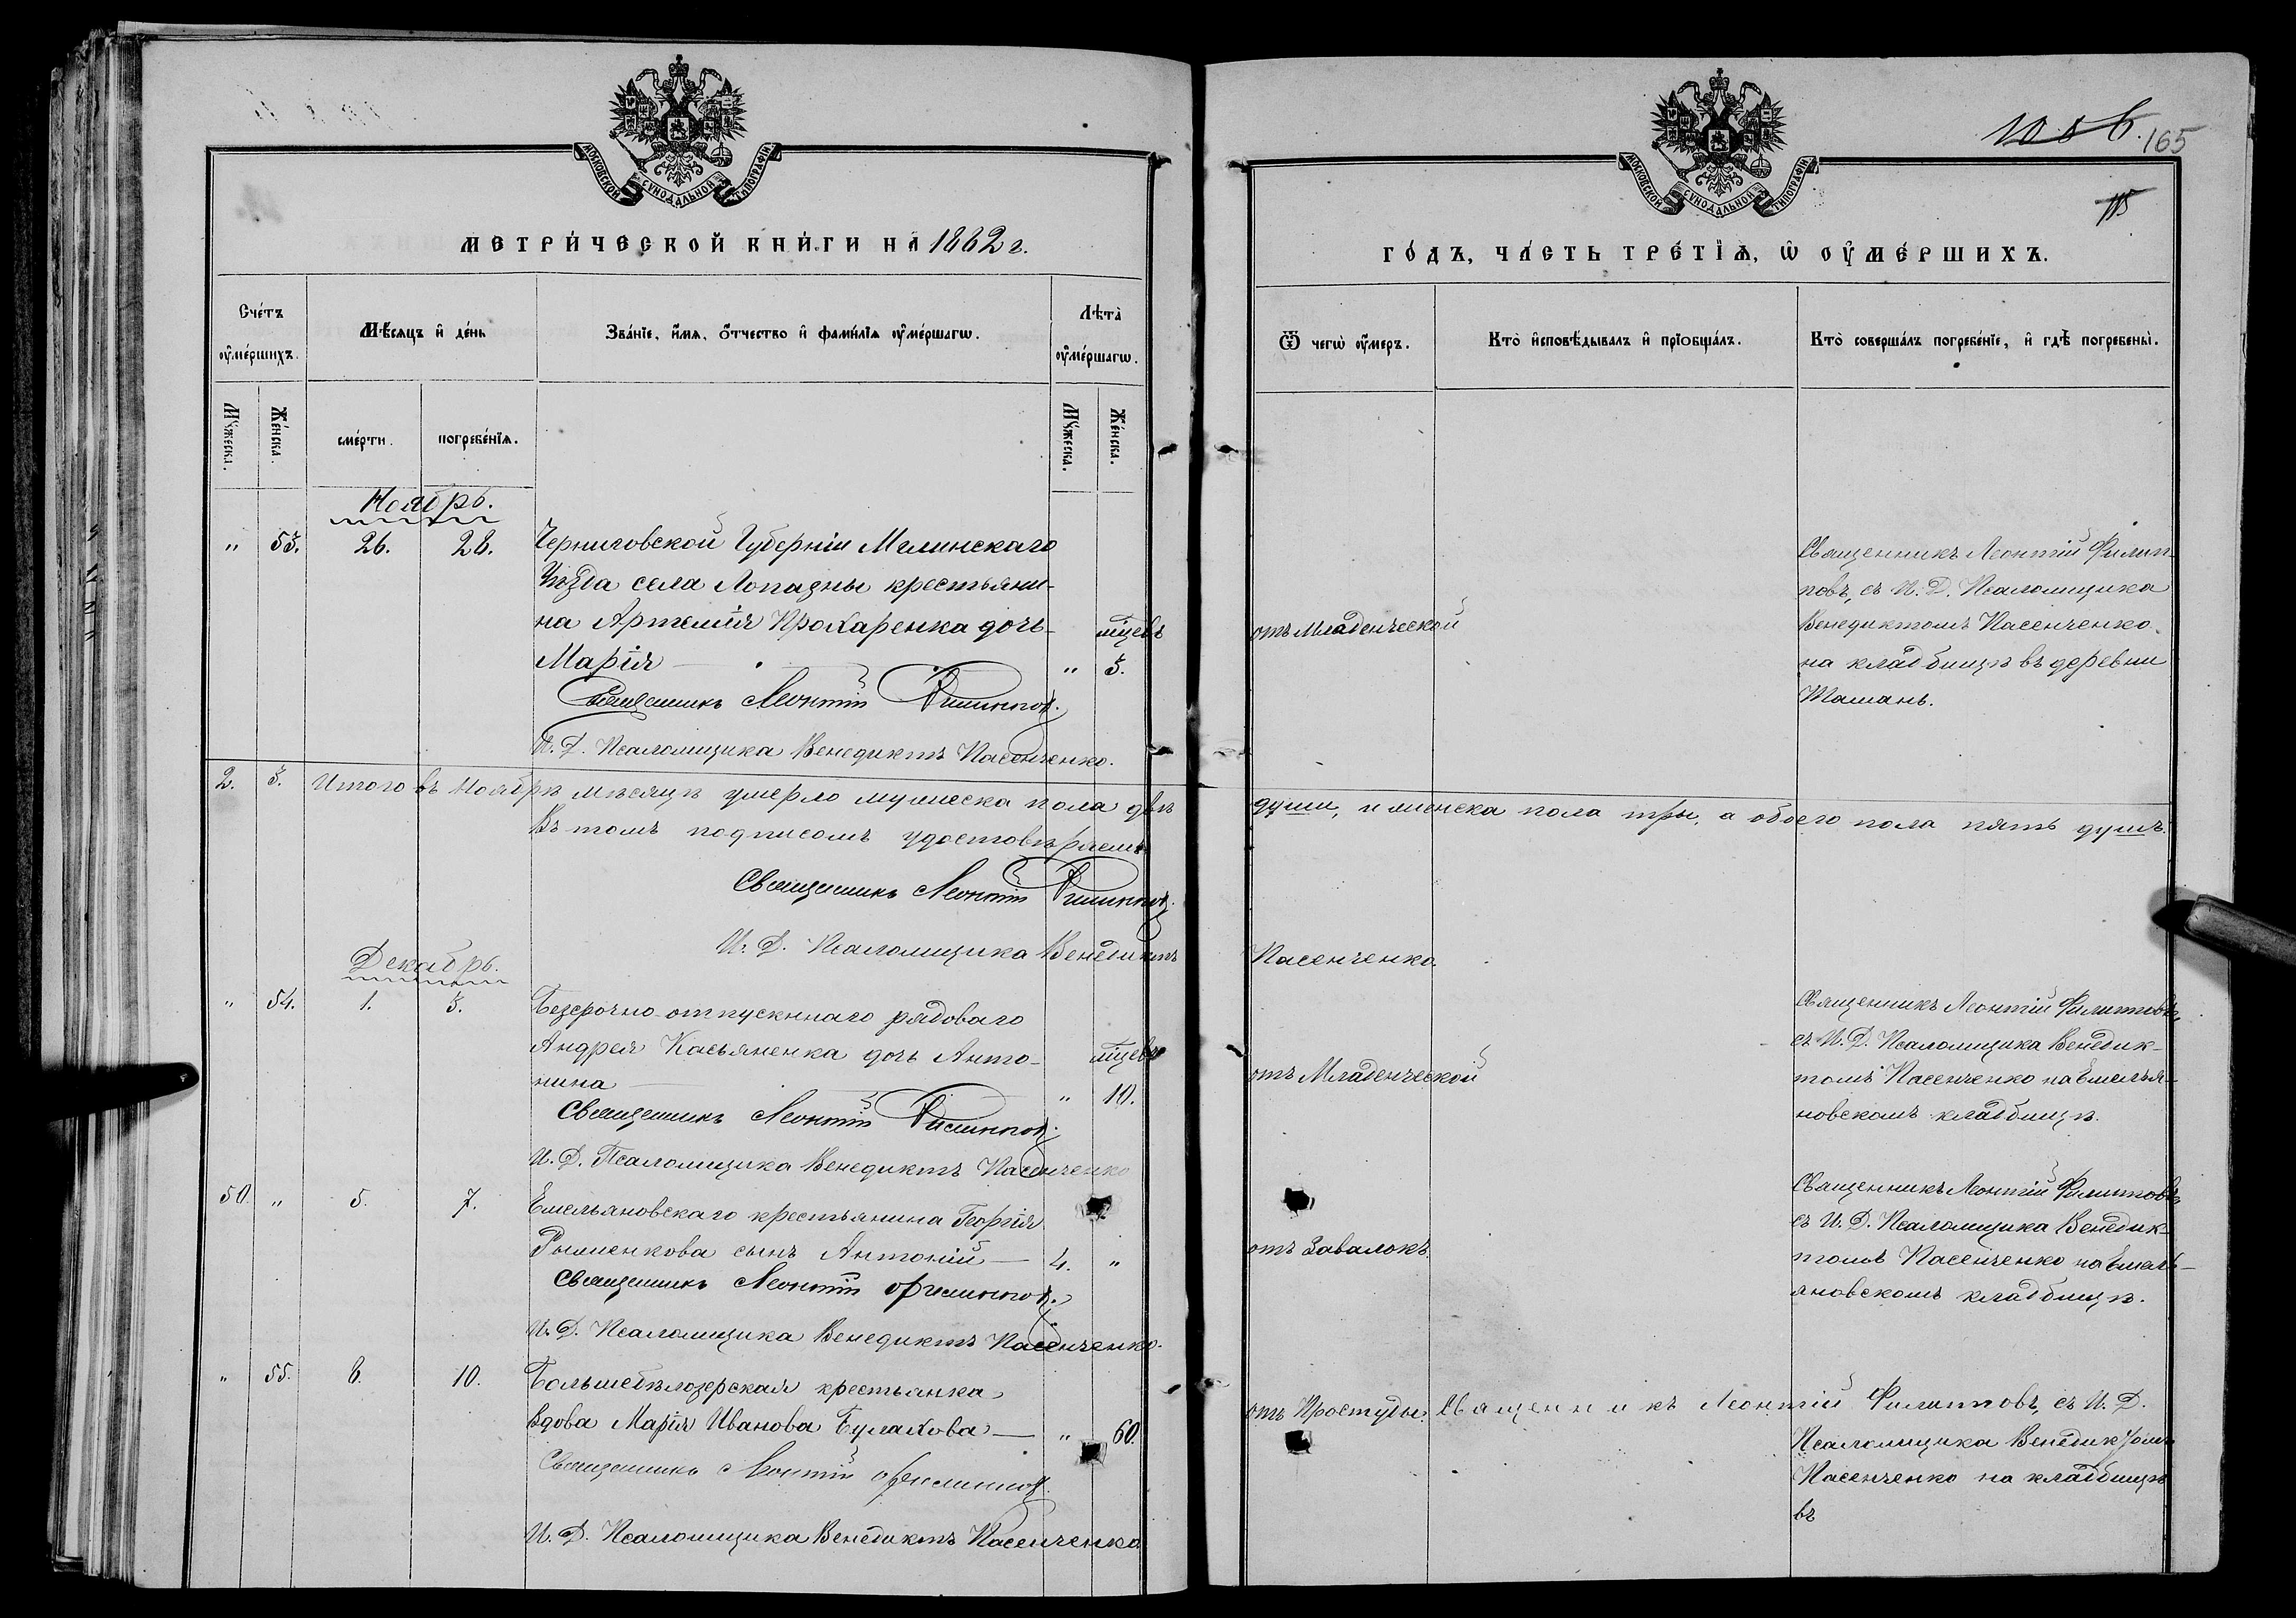 МОСКОВСКОЙ СѴНОДАЛЬНОЙ ТИПОГРАФІИ
МЕТРИ́ЧЕСКОЙ КНИ́ГИ НА 1882 г.
Сче́тъ ᲂу҆ме́ршихъ.
Мѣ́сяцъ и҆ де́нь
Зва́нїе, и҆́мѧ, ѻ҆́тчество и҆ фами́лїѧ ᲂу҆ме́ршагѡ.
Лѣ́та ᲂу҆ме́ршагѡ.
Мꙋ́жеска.
Же́нска.
сме́рти.
погребе́нїѧ.
Мꙋ́жеска.
Же́нска.
Ноябрь.
" 53. 26. 28. Черниговской Губерніи Мглинскаго
Уѣзда села Лопазны крестьяни-
на Артемія Прохаренка дочь мѣцевъ
Марія " 3.
Священникъ Леонтій Филиппов.
И. Д. Псаломщика Венедиктъ Пасенченко.
2. 3. Итого въ Ноябрѣ мѣсяцѣ умерло мужеска пола двѣ
Въ томъ подписомъ удостовѣряемъ
Священникъ Леонтій Филиппов.
И. Д. Псаломщика Венедиктъ
Декабрь.
" 54. 1. 3. Безсрочно-отпускннаго рядоваго
Андрея Касьяненка дочь Анто- мѣцевъ
нина " 10.
Священникъ Леонтій Филиппов.
И. Д. Псаломщика Венедиктъ Пасенченко
50. " 5. 7. Емельяновскаго крестьянина Георгія
Рыженкова сынъ Антоній 4. "
Священникъ Леонтій Филиппов.
И. Д. Псаломщика Венедиктъ Пасенченко.
" 55. 8. 10. Большебѣлозерская крестьянка
вдова Марія Иванова Булахова " 60.
Священникъ Леонтій Филиппов.
И. Д. Псаломщика Венедиктъ Пасенченко
МОСКОВСКОЙ СѴНОДАЛЬНОЙ ТИПОГРАФІИ
165
115
ГО́ДЪ, ЧА́СТЬ ТРЕ́ТЇѦ, Ѡ҆ ОУ҆МЕ́РШИХЪ.
Ѿ чегѡ̀ ᲂу҆́меръ.
Кто̀ и҆сповѣ́дывалъ и҆ прїѡбща́лъ.
Кто̀ соверша́лъ погребе́нїе, и҆ гдѣ̀ погребены̀.
Священникъ Леонтій Филип-
повъ, съ И. Д. Псаломщика
отъ Младенческой Венедиктомъ Пасенченко
на кладбищѣ въ деревни
Тамань.
души, и женска пола три, а обоего пола пять душъ.
Пасенченко.
Священникъ Леонтій Филипповъ,
съ И. Д. Псаломщика Венедик-
отъ Младенческой томъ Пасенченко на Емелья-
новскомъ кладбищѣ.
Священникъ Леонтій Филипповъ
съ И. Д. Псаломщика Венедик-
отъ Завалокъ. томъ Пасенченко на Емель-
яновскомъ кладбищѣ.
отъ Простуды. Священникъ Леонтій Филипповъ, съ И. Д.
Псаломщика Венедиктомъ
Пасенченко на кладбищѣ
въ